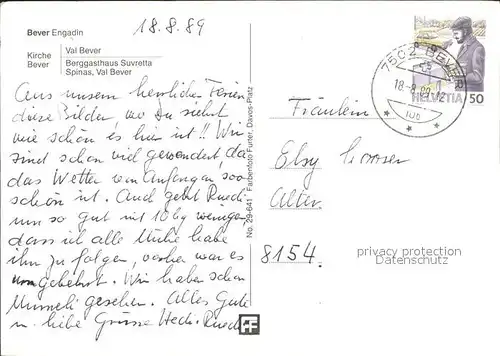 Bever Engadin
18.8.89
Kirche Bever
Val Bever
Berggasthaus Suvretta
Spinas, Val Bever
Aus unsern herrlichen Ferien
diese Bilder, wo Du siehst
wie schön es hier ist!! Wir
sind schon viel gewandert, da
das Wetter von Anfangen sooo
schön ist. Auch geht Ruedi
uns so gut mit 10 kg weniger,
dass ich alle Mühe habe
ihm zu folgen, vorher war es
umgekehrt. Wir haben schon
Murmeli gesehen. Alles Gute
u. liebe Grüsse Hedi-Ruedi
No. 29-641 Farbenfoto Furter, Davos-Platz
FF
7502 BEVER
18.-8.89-12
HELVETIA
50
Fräulein
Elsy
Alter
8154.
privacy protection
Datenschutz